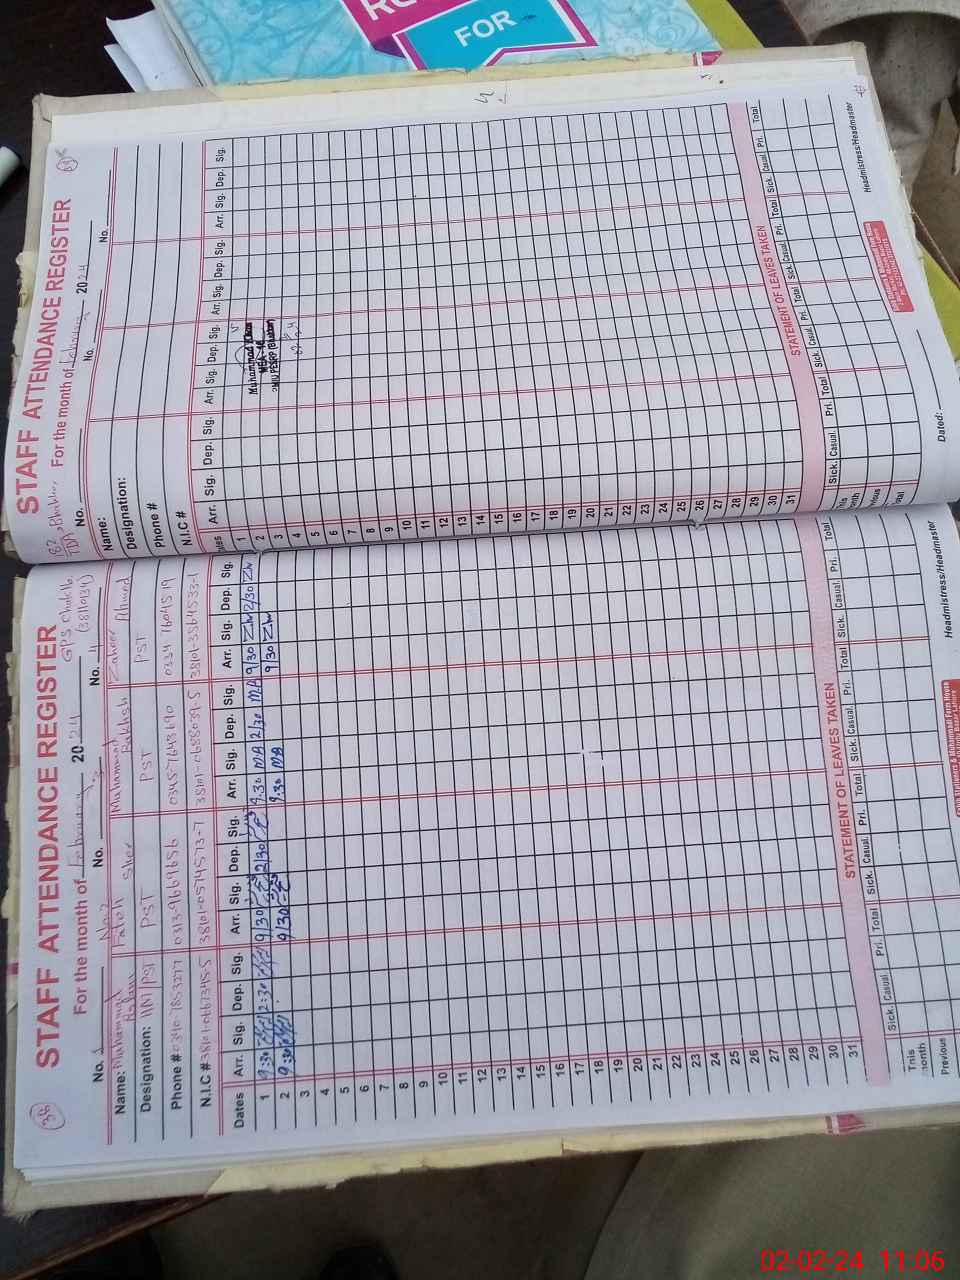 FOR
STAFF ATTENDANCE REGISTER
38
For the month of February 2024
GPS Chak 16
(38110134)
No. 1 No. 2 No. 3 No. 4
Name: Muhammad Aslam Fateh Sher Muhammad Bakhsh Zaheer Ahmad
Designation: HM/PST PST PST PST
Phone # 0340-7853277 0313-9669656 0345-7643690 0334-7604519
N.I.C # 38101-0667345-5 38101-0574573-7 38101-0688039-5 38101-3564533-1
Dates Arr. Sig. Dep. Sig. Arr. Sig. Dep. Sig. Arr. Sig. Dep. Sig. Arr. Sig. Dep. Sig.
1 9:30 2:30 9/30 2/30 9.30 MA 2/30 MA 9/30 2/30
2 9:30 9/30 9.30 MA 9/30
3
4
5
6
7
8
9
10
11
12
13
14
15
16
17
18
19
20
21
22
23
24
25
26
27
28
29
30
31
STATEMENT OF LEAVES TAKEN
Sick. Casual. Pri. Total Sick. Casual. Pri. Total Sick. Casual. Pri. Total Sick. Casual. Pri. Total.
This month
Previous
Headmistress/Headmaster
STAFF ATTENDANCE REGISTER
39
For the month of February 2024
No. No. No.
Name:
Designation:
Phone #
N.I.C #
Arr. Sig. Dep. Sig. Arr. Sig. Dep. Sig. Arr. Sig. Dep. Sig. Arr. Sig. Dep. Sig.
1
2
3
4
5
6
7
8
9
10
11
12
13
14
15
16
17
18
19
20
21
22
23
24
25
26
27
28
29
30
31
Muhammad
STATEMENT OF LEAVES TAKEN
Sick. Casual. Pri. Total Sick. Casual Pri. Total Sick. Casual. Pri. Total Sick. Casual. Pri. Total.
Dated:
Headmistress/Headmaster
02-02-24 11:06